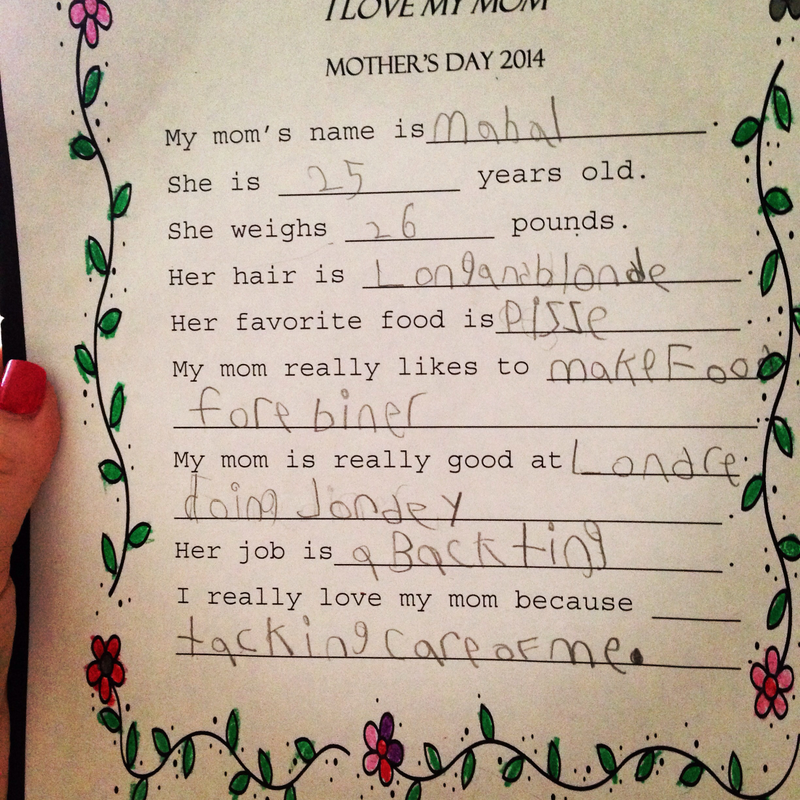 I LOVE MY MOM
MOTHER'S DAY 2014
My mom's name is Mahal.
She is 25 years old.
She weighs 26 pounds.
Her hair is Longandblonde.
Her favorite food is pisse.
My mom really likes to makeFood
fore biner
My mom is really good at Londre.
doing londey.
Her job is a Backting.
I really love my mom because
tacking care of me.